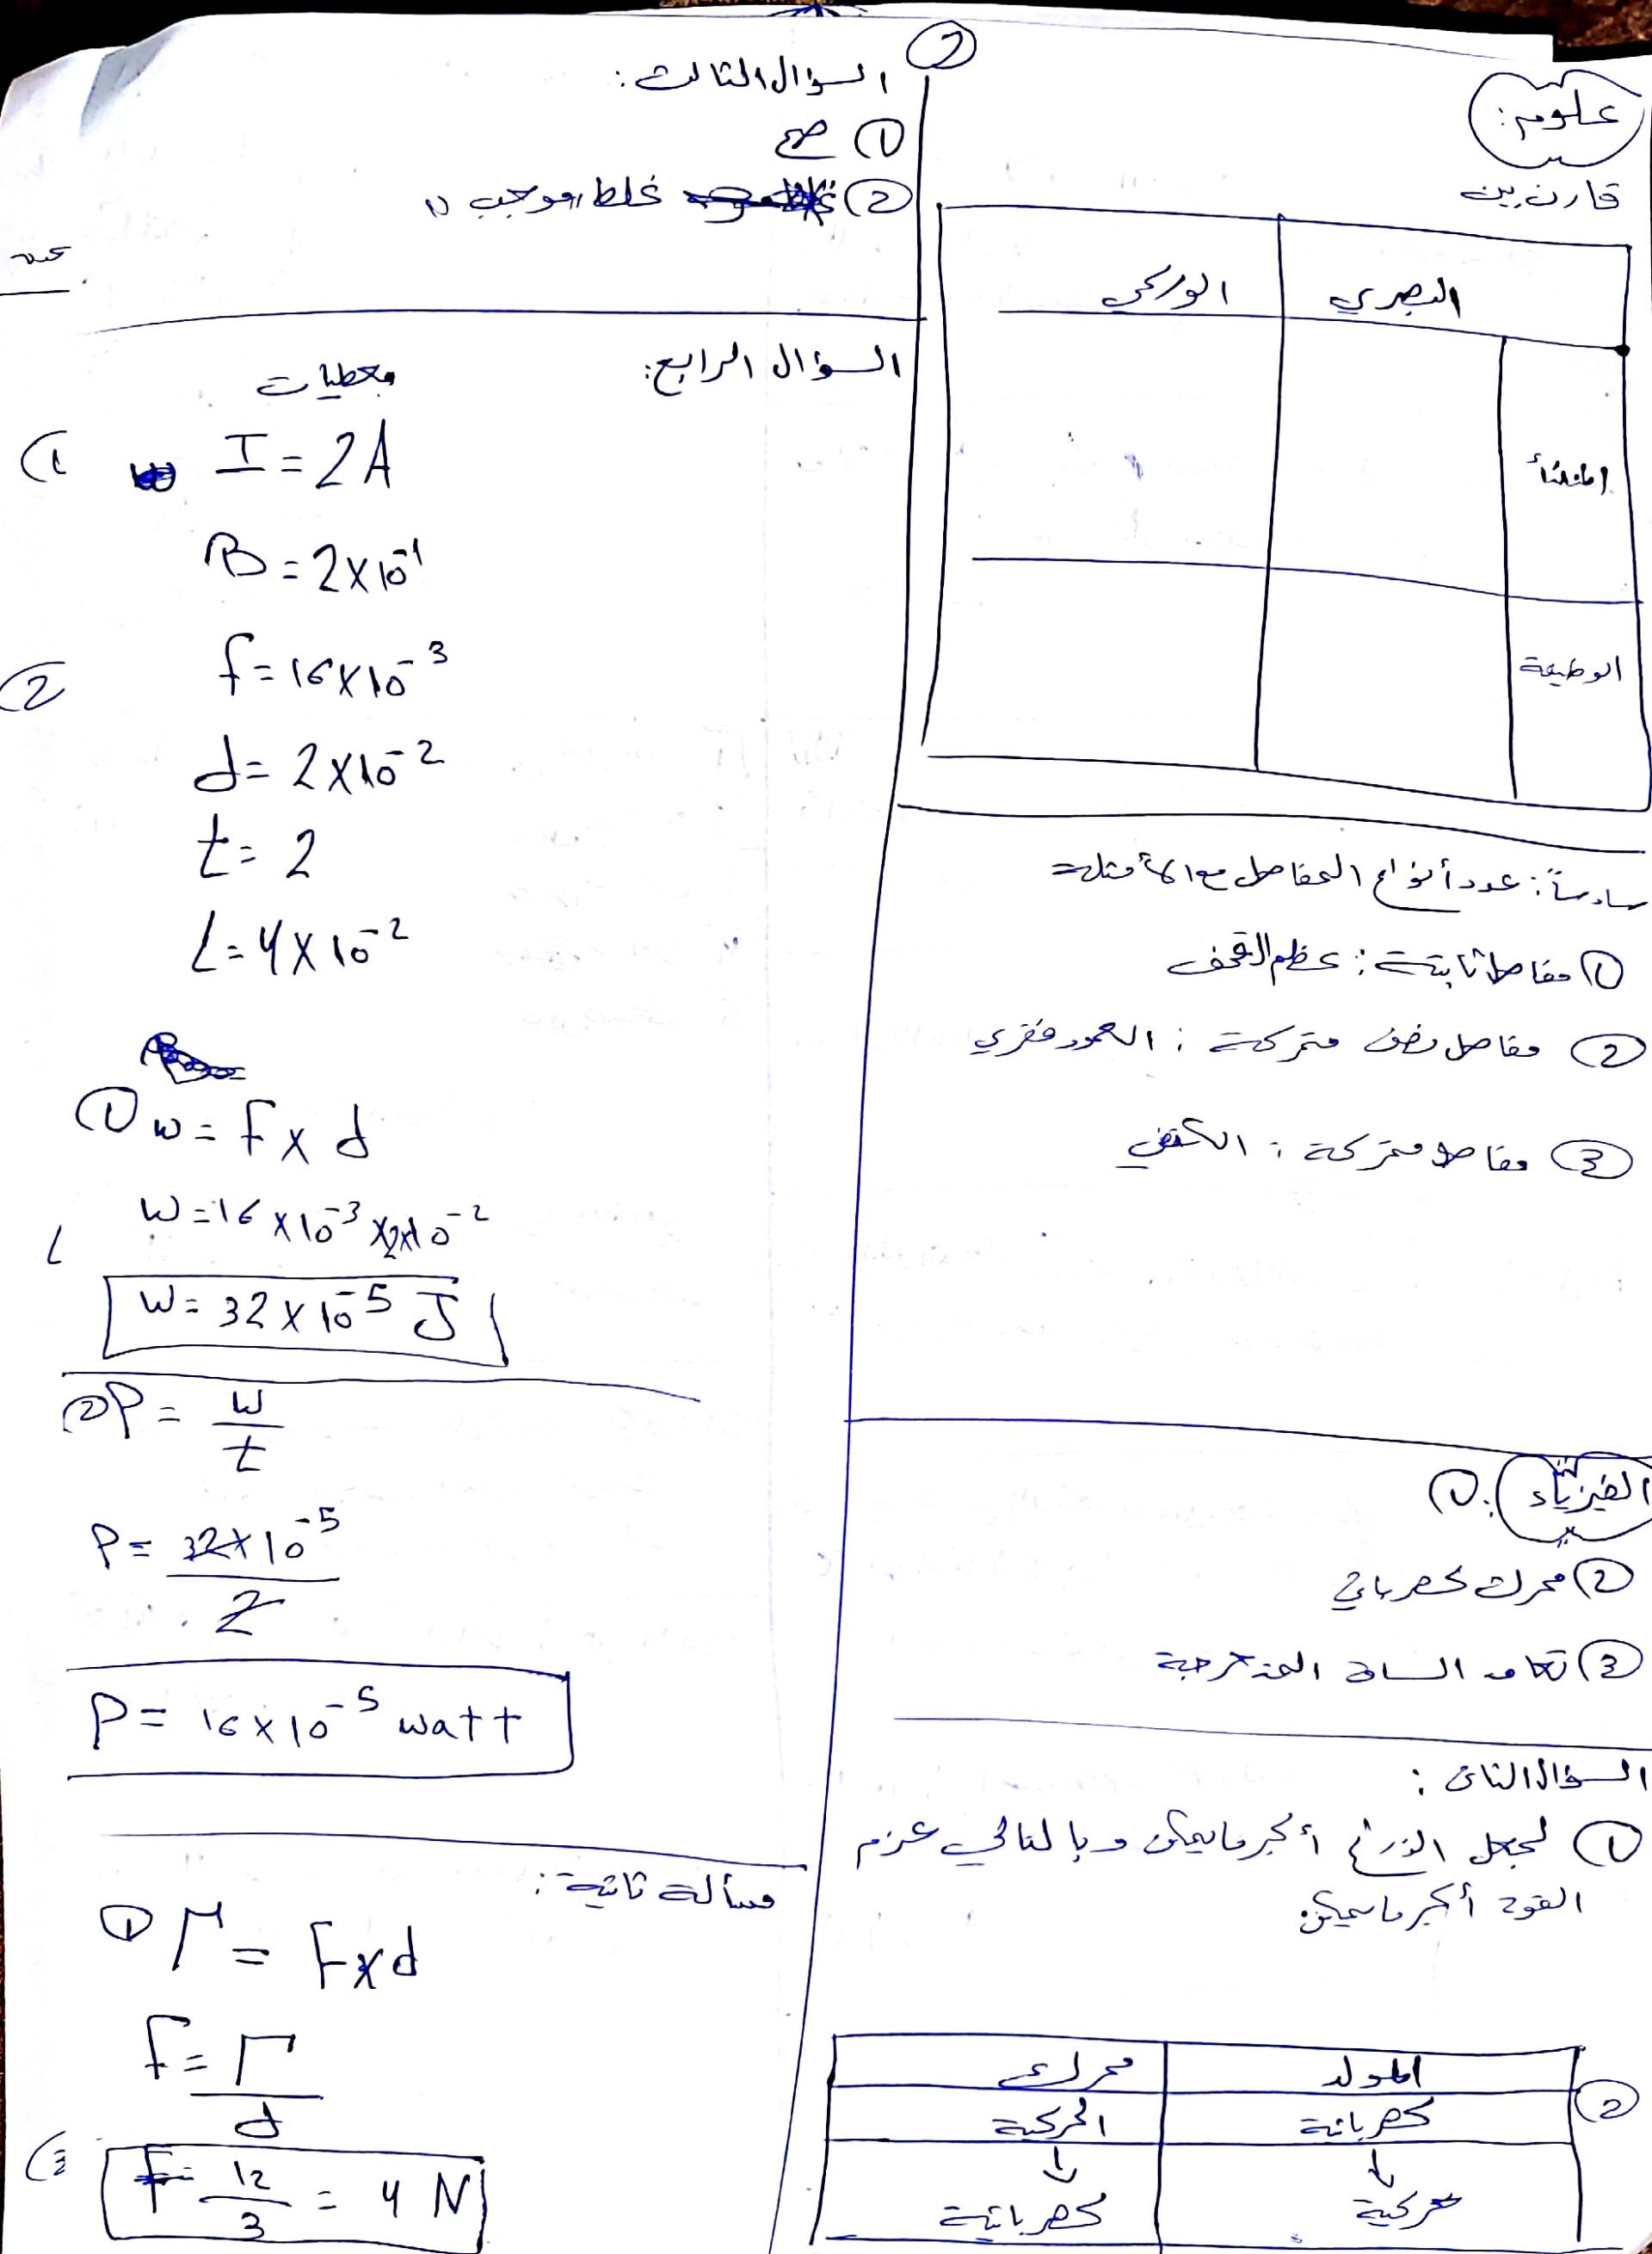 2
علوم:
قارن بين
البصري
الوركي
المنشأ
الوظيفة
سادساً: عدد أنواع المفاصل مع الأمثلة
1 مفاصل ثابتة: عظم القحف
2 مفاصل نصف متحركة: العمود فقري
3 مفاصل متحركة: الكتف
الفيزياء: 1
2 محرك كهربائي
3 تعامد الساق المتدحرجة
السؤال الثاني:
1 لجعل الذراع أكبر ما يمكن وبالتالي عزم
القوة أكبر ما يمكن
2
المولد
محرك
كهربائية
الحركية
↓
↓
حركية
كهربائية
السؤال الثالث:
1 صح
2 غلط "موجب"
السؤال الرابع:
معطيات
1 I = 2A
B = 2×10⁻¹
2 f = 16×10⁻³
d = 2×10⁻²
t = 2
L = 4×10⁻²
1 w = F × d
W = 16×10⁻³×2×10⁻²
W = 32×10⁻⁵ J
2 P = w/t
P = 32×10⁻⁵/2
P = 16×10⁻⁵ watt
مسألة ثانية:
1 Γ = F×d
F = Γ/d
F = 12/3 = 4 N